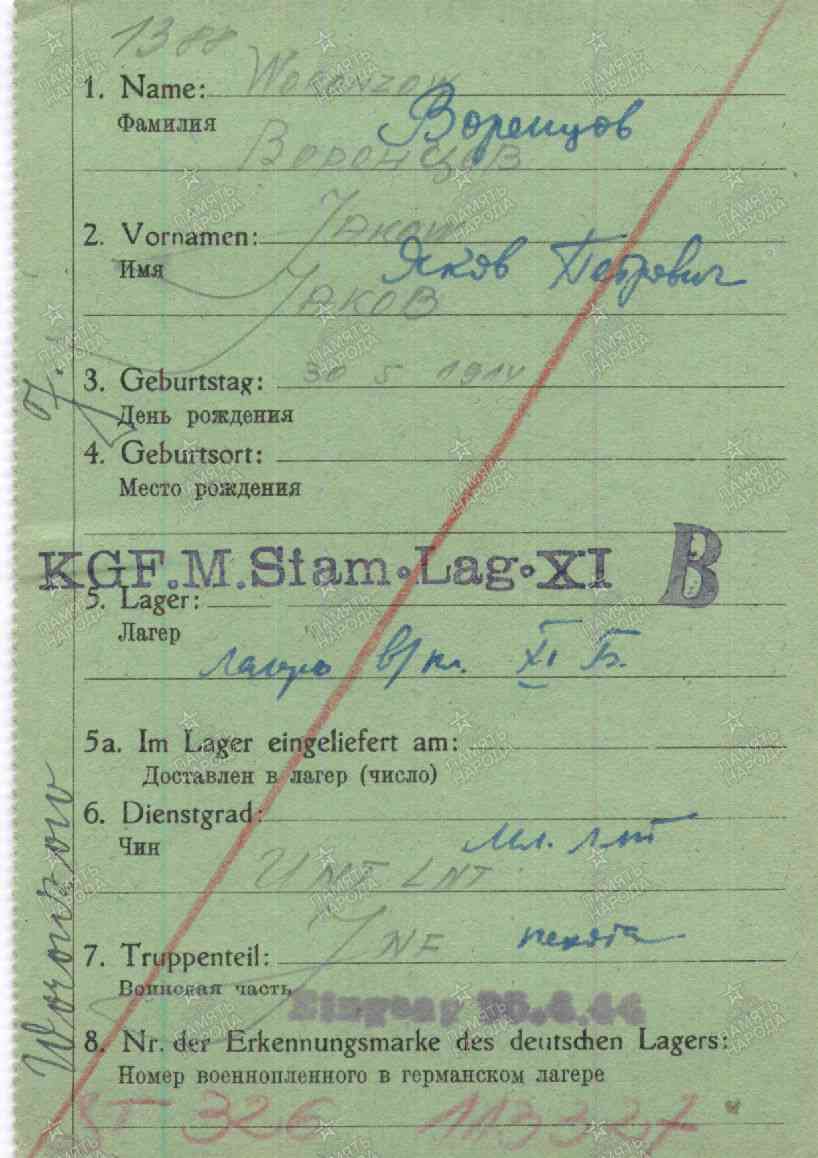 1388
1. Name: Woronzow
Фамилия Воронцов
Воронцов
2. Vornamen: Jakow
Имя Яков Петрович
Jаков
3. Geburtstag: 30 5 1914
День рождения
4. Geburtsort:
Место рождения
KGF.M.Stam.Lag.XI B
5. Lager:
Лагер
лагерь в/пл. XI Б.
5a. Im Lager eingeliefert am:
Доставлен в лагер (число)
6. Dienstgrad:
Чин Мл. л-т
UNT LNT
7. Truppenteil: INF пехота
Воинская часть
Eingang
8. Nr. der Erkennungsmarke des deutschen Lagers:
Номер военнопленного в германском лагере
326 113327
Woronzow
ПАМЯТЬ НАРОДА